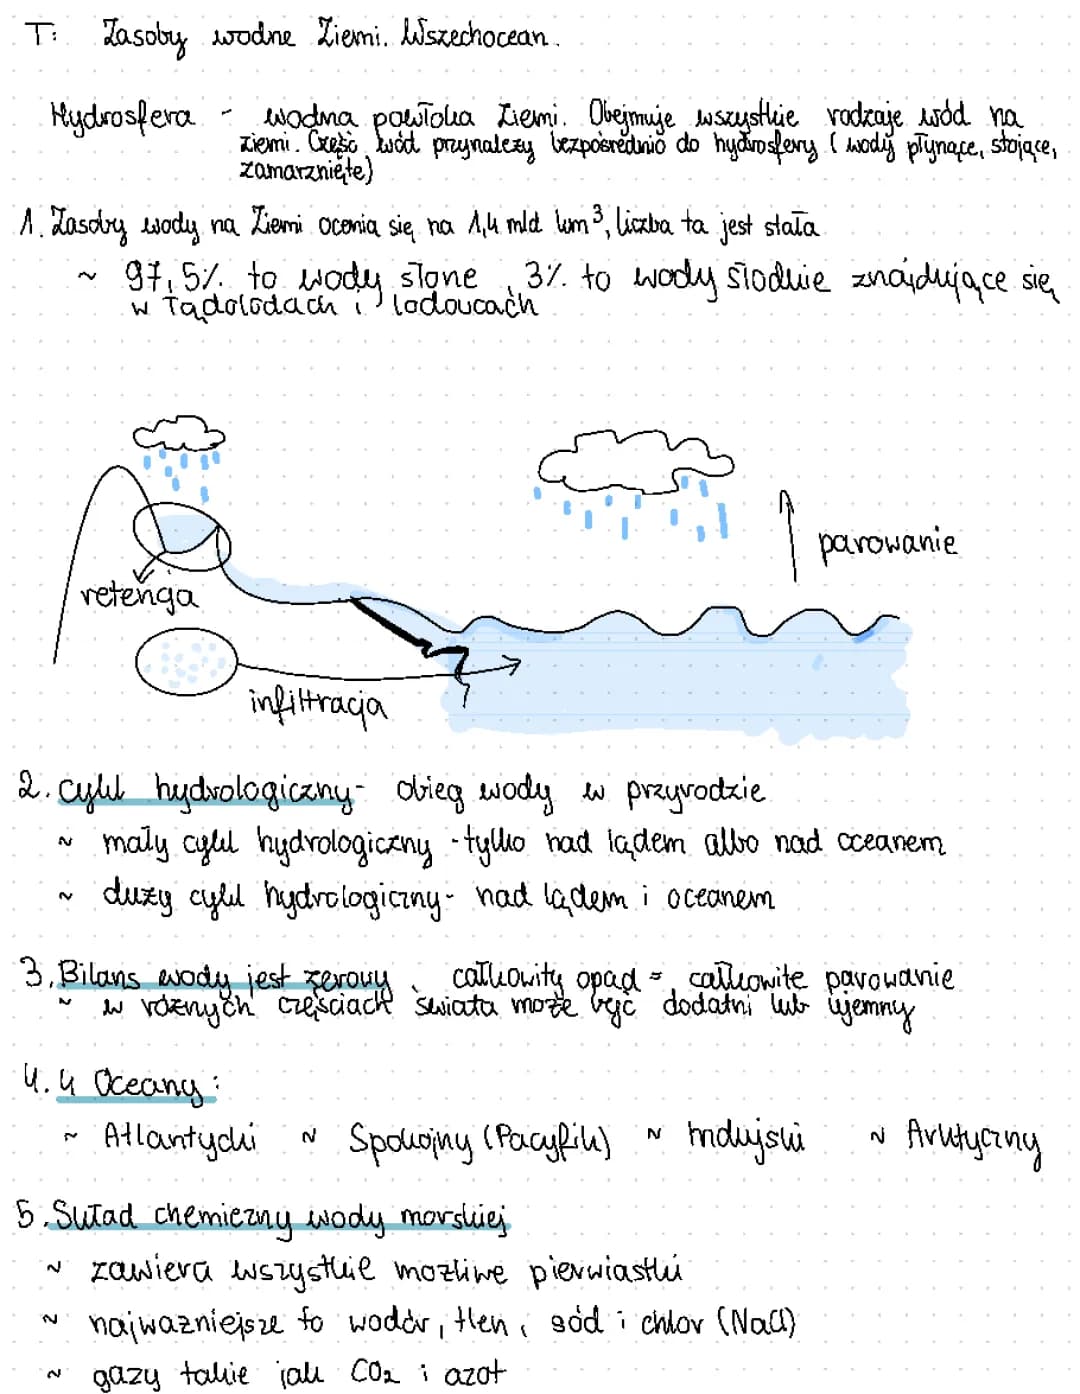 T: Zasoby wodne Ziemi. Wszechocean.
Hydrosfera - wodna powłoka Ziemi. Obejmuje wszystkie rodzaje wód na
ziemi. Część wód przynależy bezpośrednio do hydrosfery (wody płynące, stojące,
zamarznięte)
1. Zasoby wody na Ziemi ocenia się na 1,4 mld km³, liczba ta jest stała
~ 97,5% to wody słone, 3% to wody słodkie znajdujące się
w lądolodach i lodowcach
parowanie
retencja
infiltracja
2. cykl hydrologiczny - obieg wody w przyrodzie
~ mały cykl hydrologiczny - tylko nad lądem albo nad oceanem
~ duży cykl hydrologiczny - nad lądem i oceanem
3. Bilans wody jest zerowy, całkowity opad = całkowite parowanie
~ w różnych częściach świata może być dodatni lub ujemny
4. 4 Oceany:
~ Atlantycki ~ Spokojny (Pacyfik) ~ Indyjski ~ Arktyczny
5. Skład chemiczny wody morskiej
~ zawiera wszystkie możliwe pierwiastki
~ najważniejsze to wodór, tlen, sód i chlor (NaCl)
~ gazy takie jak CO₂ i azot